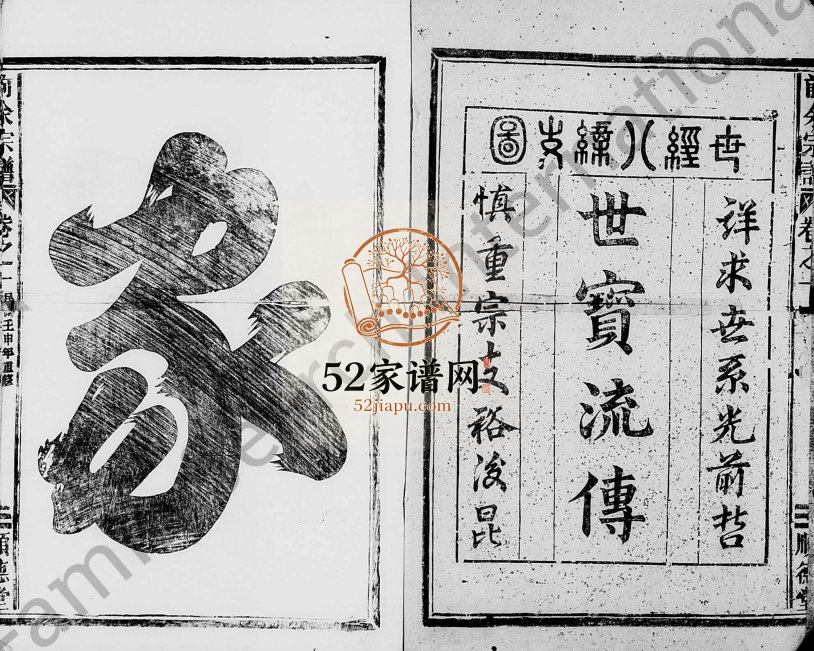 世經人緯支圖
詳求世系光前哲
世寶流傳
慎重宗支裕後昆
家
前余宗譜
卷之一
民國壬申年重修
順德堂
前余宗譜
卷之一
順德堂
52家谱网
52jiapu.com